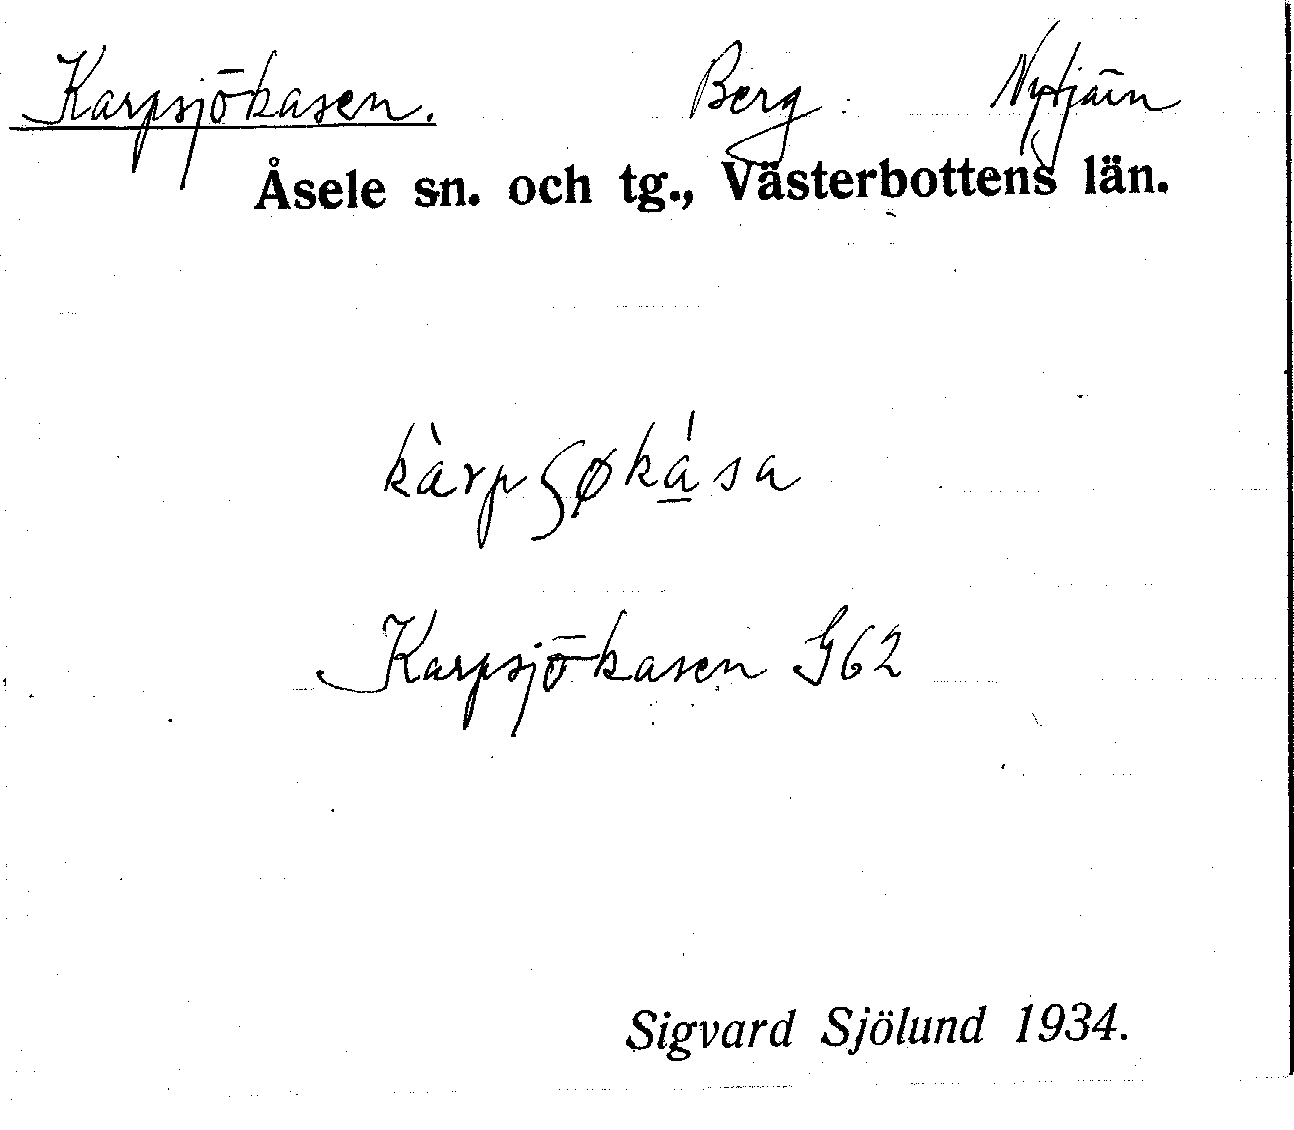 Karpsjökasen. Berg Nytjärn
Åsele sn. och tg., Västerbottens län.
kàrpʂøká̱sa
Karpsjökasen G62
Sigvard Sjölund 1934.